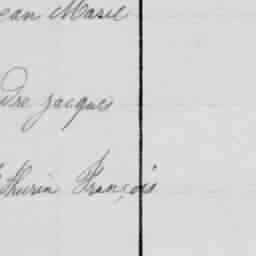 ean Marie
dre jacques
thurin François